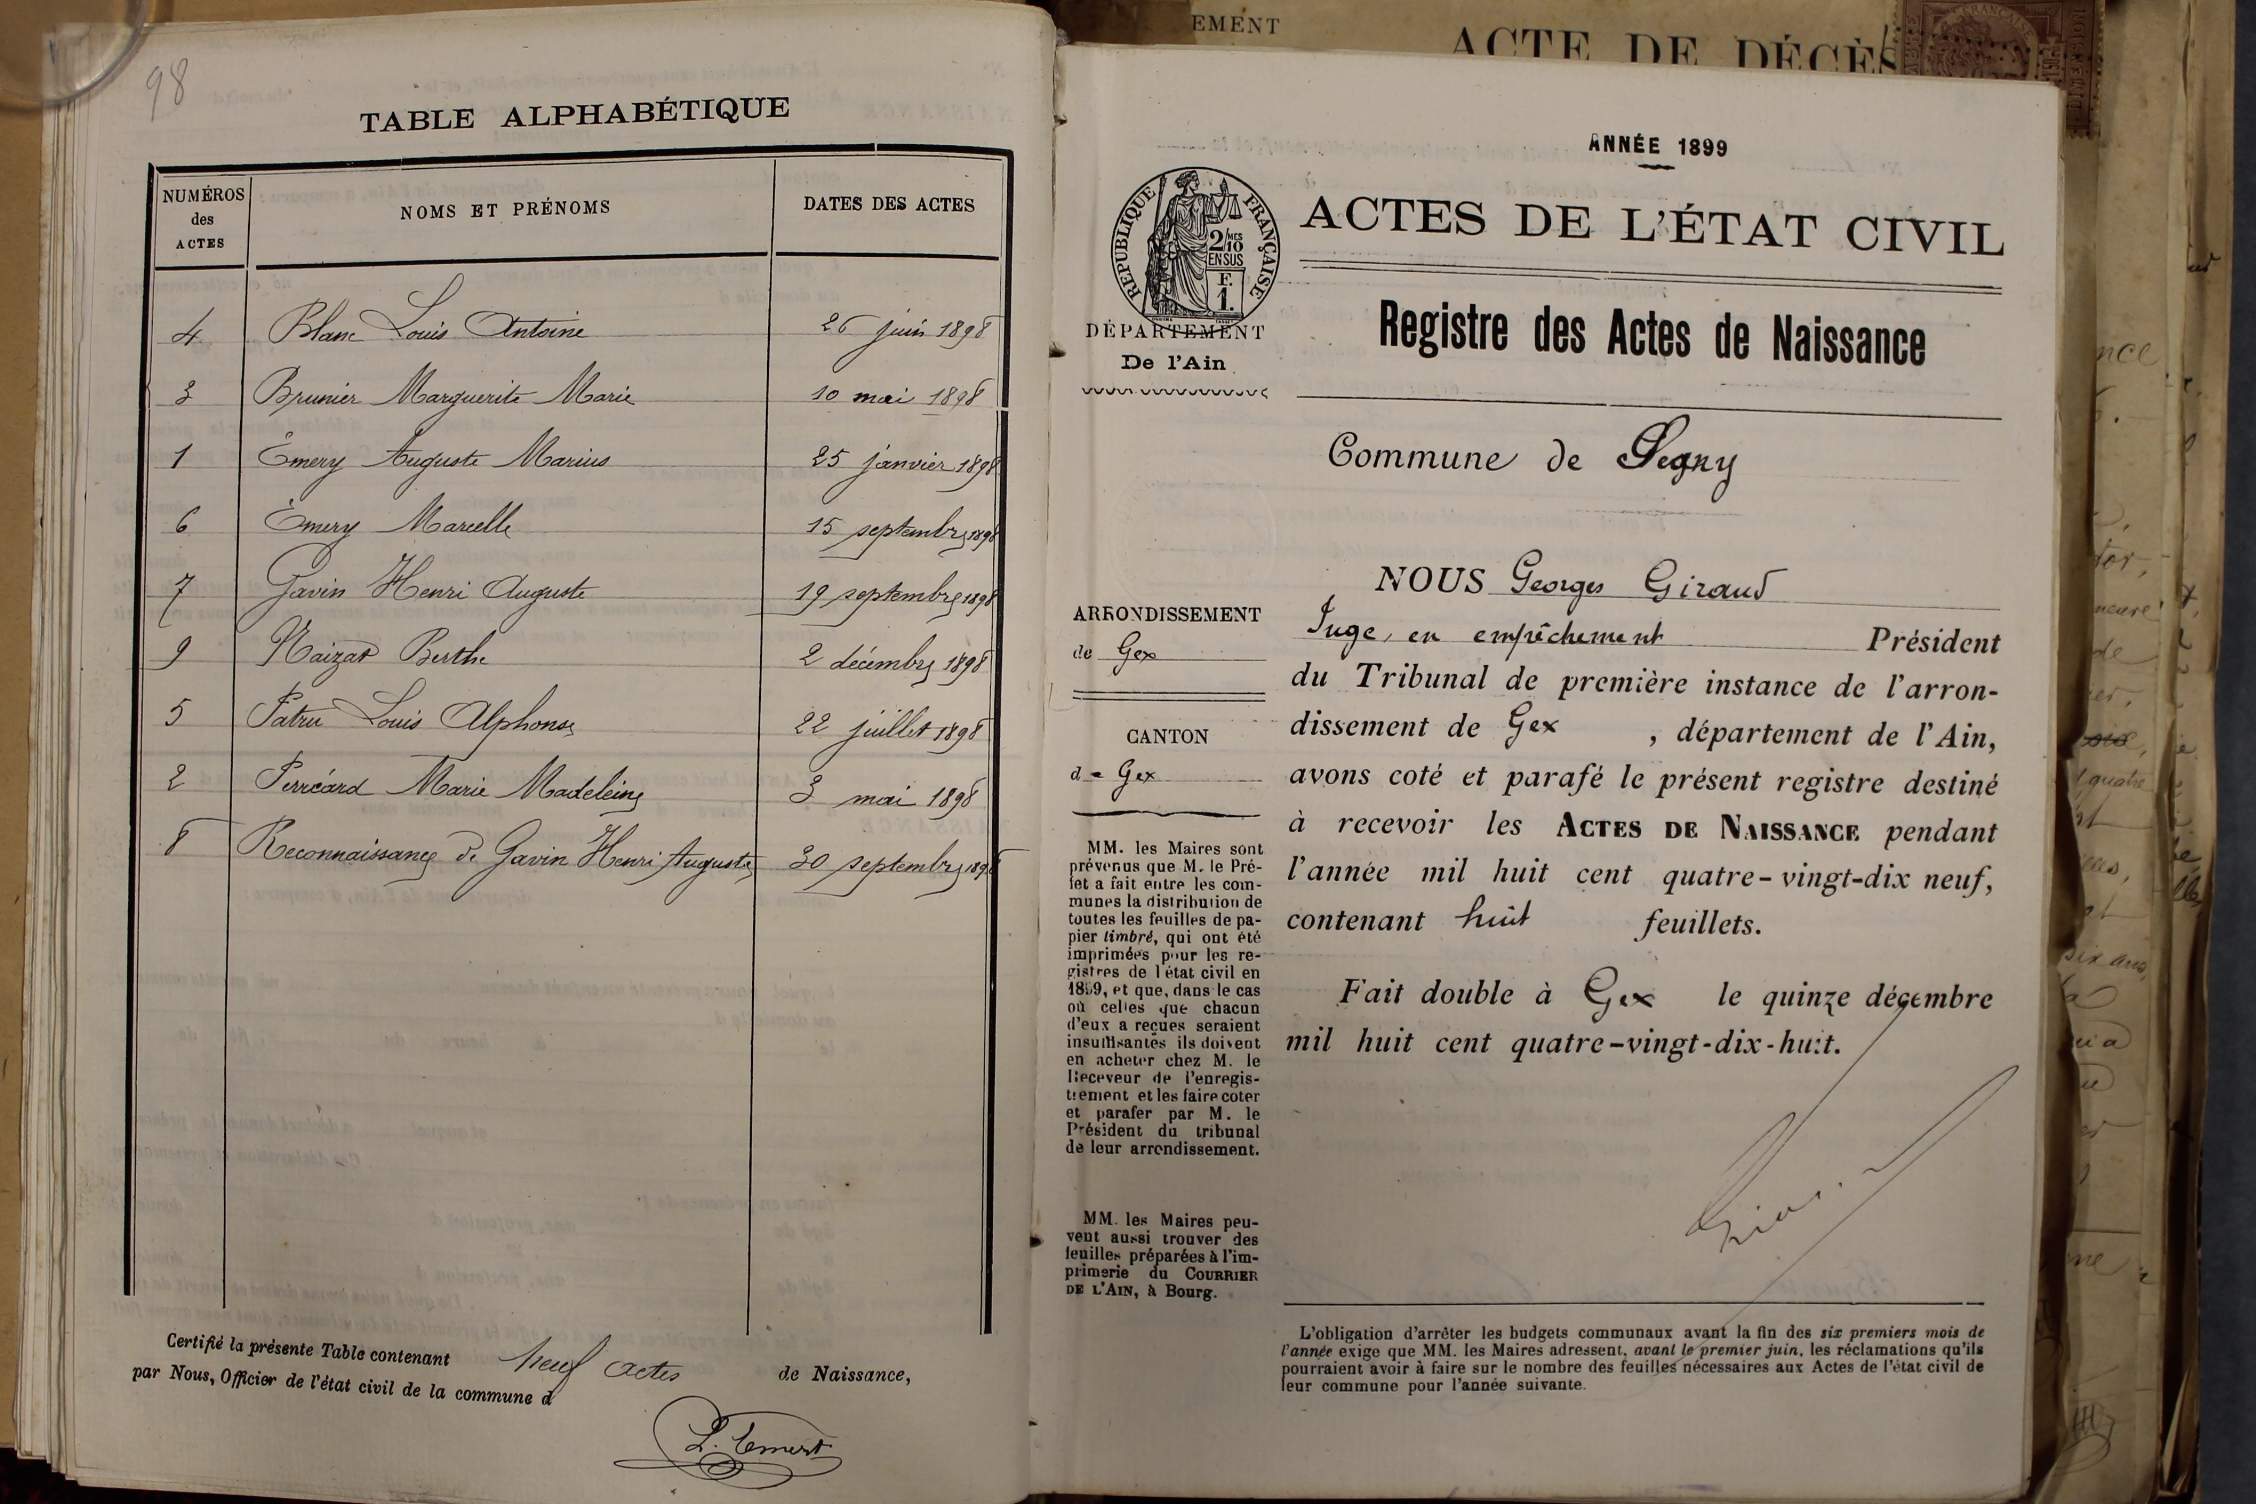 98
TABLE ALPHABÉTIQUE
NUMÉROS des ACTES NOMS ET PRÉNOMS DATES DES ACTES
4 Blanc Louis Antoine 26 juin 1898
3 Brunier Marguerite Marie 10 mai 1898
1 Émery Auguste Marius 25 janvier 1898
6 Émery Marcelle 15 septembre 1898
7 Gavin Henri Auguste 19 septembre 1898
9 Naizar Berthe 2 décembre 1898
5 Patru Louis Alphonse 22 juillet 1898
2 Perréard Marie Madeleine 3 mai 1898
8 Reconnaissance de Gavin Henri Auguste 30 septembre 1898
Certifié la présente Table contenant neuf actes de Naissance,
par Nous, Officier de l'état civil de la commune d
EMENT
ACTE DE DÉCÈS
ANNÉE 1899
RÉPUBLIQUE FRANÇAISE
2/10 MES
EN SUS
F.
1.
ACTES DE L'ÉTAT CIVIL
DÉPARTEMENT
De l'Ain
Registre des Actes de Naissance
Commune de Segny
ARRONDISSEMENT
de Gex
CANTON
de Gex
MM. les Maires sont
prévenus que M. le Pré-
fet a fait entre les com-
munes la distribution de
toutes les feuilles de pa-
pier timbré, qui ont été
imprimées pour les re-
gistres de l'état civil en
1899, et que, dans le cas
où celles que chacun
d'eux a reçues seraient
insuffisantes ils doivent
en acheter chez M. le
Receveur de l'enregis-
trement et les faire coter
et parafer par M. le
Président du tribunal
de leur arrondissement.
MM. les Maires peu-
vent aussi trouver des
feuilles préparées à l'im-
primerie du COURRIER
DE L'AIN, à Bourg.
NOUS Georges Giraud
Juge, en empêchement Président
du Tribunal de première instance de l'arron-
dissement de Gex , département de l'Ain,
avons coté et parafé le présent registre destiné
à recevoir les ACTES DE NAISSANCE pendant
l'année mil huit cent quatre-vingt-dix neuf,
contenant huit feuillets.
Fait double à Gex le quinze décembre
mil huit cent quatre-vingt-dix-huit.
L'obligation d'arrêter les budgets communaux avant la fin des six premiers mois de
l'année exige que MM. les Maires adressent, avant le premier juin, les réclamations qu'ils
pourraient avoir à faire sur le nombre des feuilles nécessaires aux Actes de l'état civil de
leur commune pour l'année suivante.